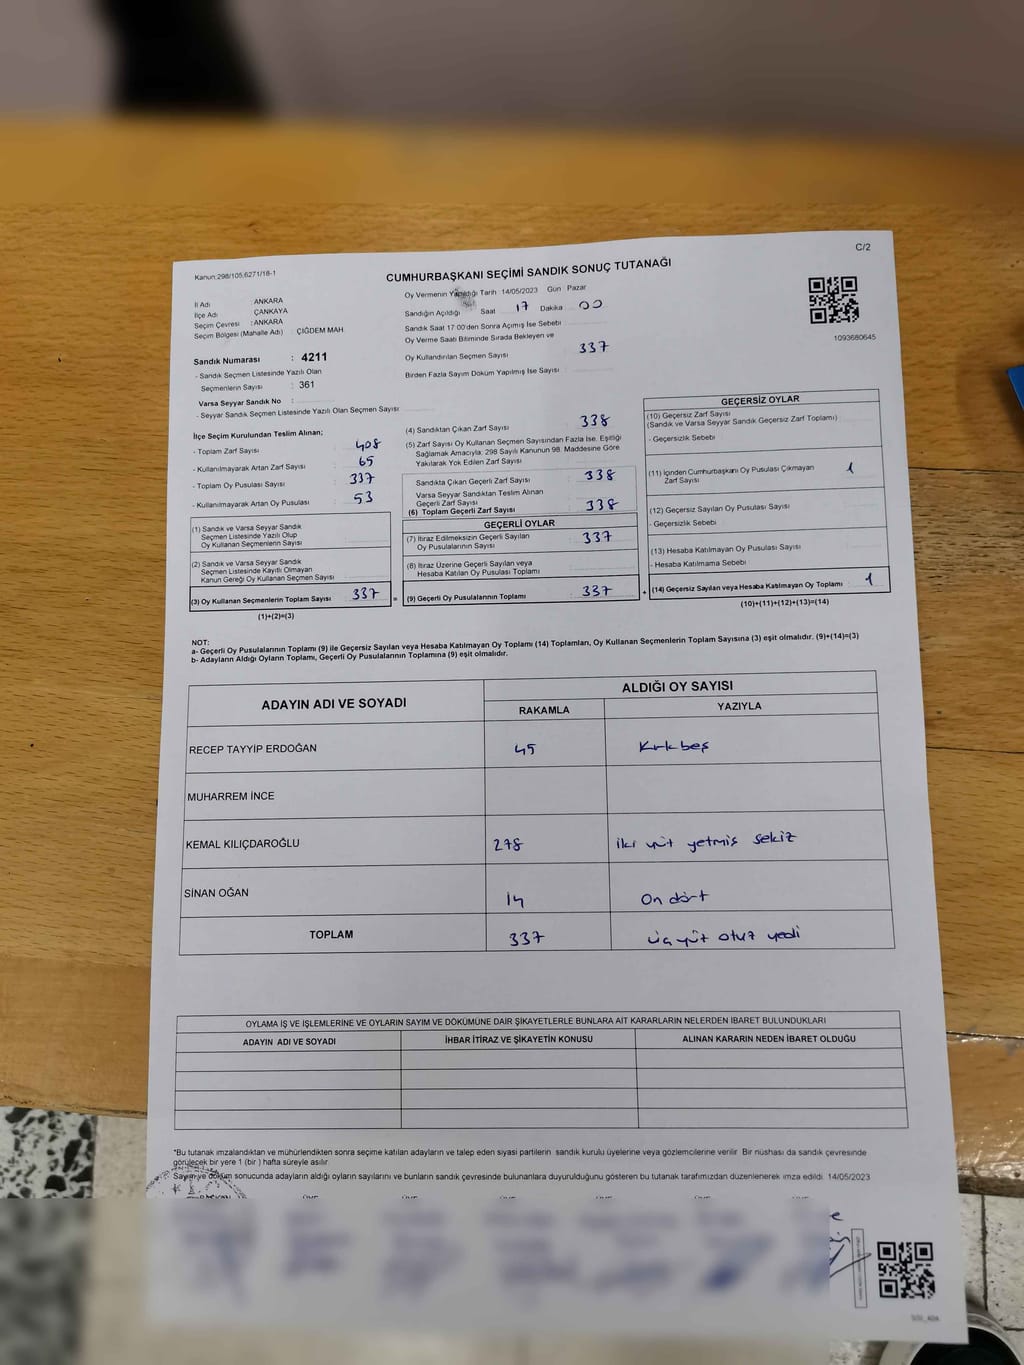 C/2
Kanun:298/105,6271/18-1
CUMHURBAŞKANI SEÇİMİ SANDIK SONUÇ TUTANAĞI
İl Adı : ANKARA
İlçe Adı : ÇANKAYA
Seçim Çevresi : ANKARA
Seçim Bölgesi (Mahalle Adı) : ÇİĞDEM MAH
Sandık Numarası : 4211
- Sandık Seçmen Listesinde Yazılı Olan
Seçmenlerin Sayısı : 361
Varsa Seyyar Sandık No :
- Seyyar Sandık Seçmen Listesinde Yazılı Olan Seçmen Sayısı
Oy Vermenin Yapıldığı Tarih 14/05/2023 Gün Pazar
Sandığın Açıldığı Saat 17 Dakika 00
Sandık Saat 17 00'den Sonra Açımış İse Sebebi
Oy Verme Saati Bitiminde Sırada Bekleyen ve
Oy Kullandırılan Seçmen Sayısı 337
Birden Fazla Sayım Döküm Yapılmış İse Sayısı
1093680645
İlçe Seçim Kurulundan Teslim Alınan;
- Toplam Zarf Sayısı 408
- Kullanılmayarak Artan Zarf Sayısı 65
- Toplam Oy Pusulası Sayısı 337
- Kullanılmayarak Artan Oy Pusulası 53
(1) Sandık ve Varsa Seyyar Sandık
Seçmen Listesinde Yazılı Olup
Oy Kullanan Seçmenlerin Sayısı
(2) Sandık ve Varsa Seyyar Sandık
Seçmen Listesinde Kayıtlı Olmayan
Kanun Gereği Oy Kullanan Seçmen Sayısı
(3) Oy Kullanan Seçmenlerin Toplam Sayısı 337 =
(1)+(2)=(3)
(4) Sandıktan Çıkan Zarf Sayısı 338
(5) Zarf Sayısı Oy Kullanan Seçmen Sayısından Fazla İse, Eşitliği
Sağlamak Amacıyla: 298 Sayılı Kanunun 98. Maddesine Göre
Yakılarak Yok Edilen Zarf Sayısı
Sandıkta Çıkan Geçerli Zarf Sayısı 338
Varsa Seyyar Sandıktan Teslim Alınan
Geçerli Zarf Sayısı
(6) Toplam Geçerli Zarf Sayısı 338
GEÇERLİ OYLAR
(7) İtiraz Edilmeksizin Geçerli Sayılan
Oy Pusulalarının Sayısı 337
(8) İtiraz Üzerine Geçerli Sayılan veya
Hesaba Katılan Oy Pusulası Toplamı
(9) Geçerli Oy Pusulalarının Toplamı 337 +
GEÇERSİZ OYLAR
(10) Geçersiz Zarf Sayısı
(Sandık ve Varsa Seyyar Sandık Geçersiz Zarf Toplamı)
- Geçersizlik Sebebi
(11) İçinden Cumhurbaşkanı Oy Pusulası Çıkmayan
Zarf Sayısı 1
(12) Geçersiz Sayılan Oy Pusulası Sayısı
- Geçersizlik Sebebi
(13) Hesaba Katılmayan Oy Pusulası Sayısı
- Hesaba Katılmama Sebebi
(14) Geçersiz Sayılan veya Hesaba Katılmayan Oy Toplamı 1
(10)+(11)+(12)+(13)=(14)
NOT:
a- Geçerli Oy Pusulalarının Toplamı (9) ile Geçersiz Sayılan veya Hesaba Katılmayan Oy Toplamı (14) Toplamları, Oy Kullanan Seçmenlerin Toplam Sayısına (3) eşit olmalıdır. (9)+(14)=(3)
b- Adayların Aldığı Oyların Toplamı, Geçerli Oy Pusulalarının Toplamına (9) eşit olmalıdır.
ADAYIN ADI VE SOYADI ALDIĞI OY SAYISI
RAKAMLA YAZIYLA
RECEP TAYYİP ERDOĞAN 45 Kırkbeş
MUHARREM İNCE
KEMAL KILIÇDAROĞLU 278 iki yüz yetmiş sekiz
SİNAN OĞAN 14 On dört
TOPLAM 337 üç yüz otuz yedi
OYLAMA İŞ VE İŞLEMLERİNE VE OYLARIN SAYIM VE DÖKÜMÜNE DAİR ŞİKAYETLERLE BUNLARA AİT KARARLARIN NELERDEN İBARET BULUNDUKLARI
ADAYIN ADI VE SOYADI İHBAR İTİRAZ VE ŞİKAYETİN KONUSU ALINAN KARARIN NEDEN İBARET OLDUĞU
*Bu tutanak imzalandıktan ve mühürlendikten sonra seçime katılan adayların ve talep eden siyasi partilerin sandık kurulu üyelerine veya gözlemcilerine verilir. Bir nüshası da sandık çevresinde
görülecek bir yere 1 (bir ) hafta süreyle asılır
Sayım ve döküm sonucunda adayların aldığı oyların sayılarını ve bunların sandık çevresinde bulunanlara duyurulduğunu gösteren bu tutanak tarafımızdan düzenlenerek imza edildi. 14/05/2023